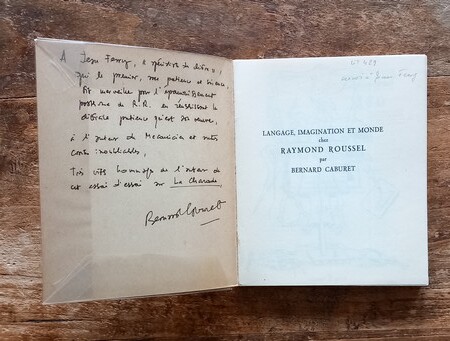 A Jean Ferry, "
qui le premier, avec patience et science,
fit merveille pour l'épanouissement
posthume de R.R. en réussissant la
difficile patience qu'est son œuvre,
à l'auteur de Mecanicien et autres
contes inoubliables,
Très vifs hommages de l'auteur de
cet essai d'essai sur La Charade
Bernard Caburet
LANGAGE, IMAGINATION ET MONDE
chez
RAYMOND ROUSSEL
par
BERNARD CABURET